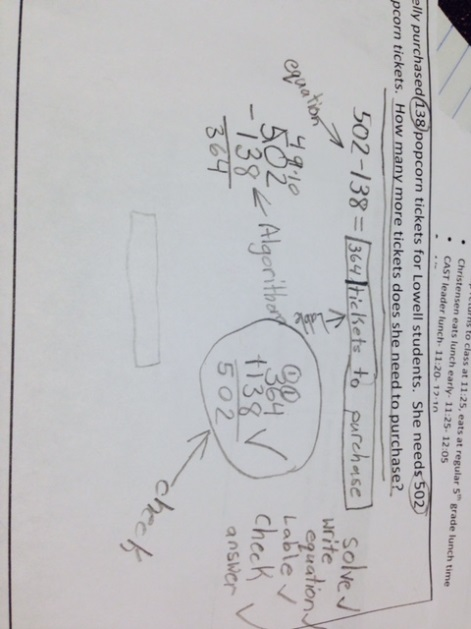 to class at 11:25, eats at regular 5th grade lunch time
• Christensen eats lunch early- 11:25- 12:05
• CAST leader lunch- 11:20- 12:10
elly purchased 138 popcorn tickets for Lowell students. She needs 502
pcorn tickets. How many more tickets does she need to purchase?
502-138=364 tickets to purchase
equation
4 9 10
502
-138
364
Algorithm
1 1
364
+138
502 ✓
check
solve ✓
write
equation ✓
Lable ✓
Check
answer ✓